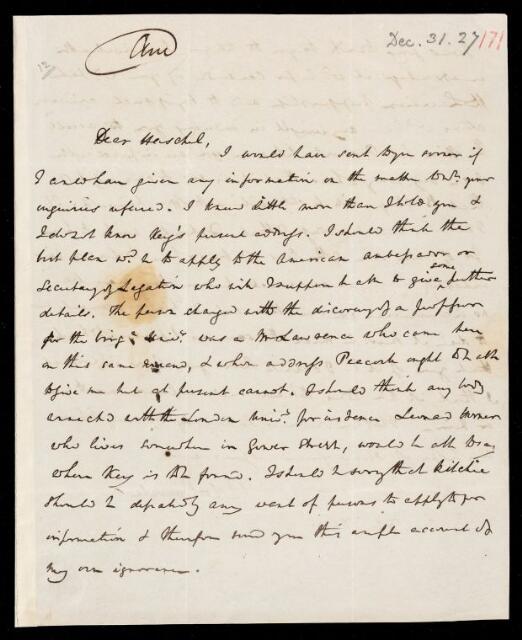 Ans^d
Dec. 31. 27
171
12
Dear Herschel,
I would have sent to you sooner if
I could have given any information on the matter to wh. your
inquiries referred. I know little more than I told you &
I do not know Key's present address. I should think the
best plan wd. be to apply to the American ambassador or
Secretary of Legation who will I suppose be able to give some further
details. The person charged with the discovery of a professor
for the Virg^a Univ^y. was a Mr Lawrence who came here
on this same errand, & whose address Peacock ought to be able
to give me but at present cannot. I should think any body
connected with the London Univ^y. for instance Leonard Horner
who lives somewhere in Gower Street, would be able to say
where Key is to be found. I should be sorry that Ritchie
should be defeated by any want of persons to apply to for
information & therefore send you this ample account of
my own ignorance.